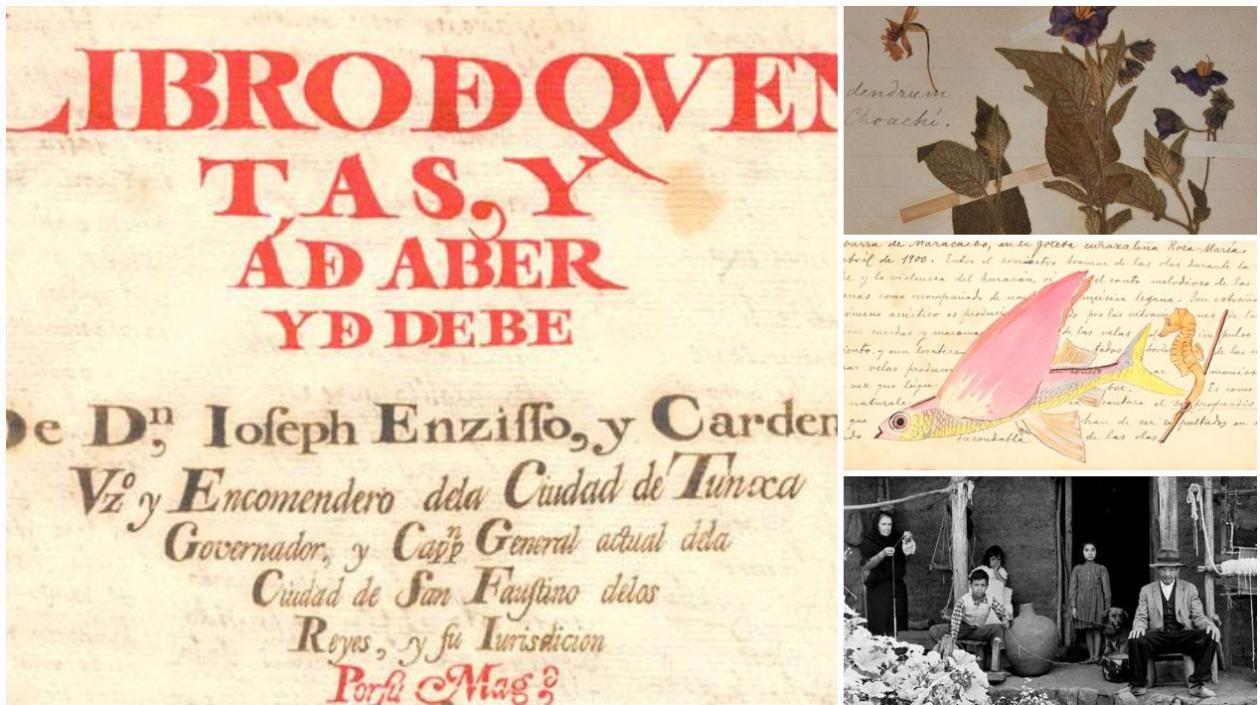 LIBRO DE QVEN
TAS, Y
Á DE ABER
Y DE DEBE
De Dⁿ, Ioseph Enzisso, y Carden
Vzº y Encomendero dela Ciudad de Tunxa
Governador, y Capⁿ General actual dela
Ciudad de San Faustino delos
Reyes, y su Iurisdicion
Por su Magᵈ
dendrum
Choachí.
barra de Maracaibo, en la goleta curazaleña Rosa-María,
abril de 1900. Entre el siniestro bramar de las olas durante la
y la violencia del huracán, el canto melodioso de las
como acompañado de música lejana. Tan extraño
fenómeno acústico es producido por las vibraciones de la
cuerdas y maromas de las velas impulso
viento, y aun los
velas
vez que llegue Es como
naturale cantara el
que han de ser sepultados en
insondable de las olas